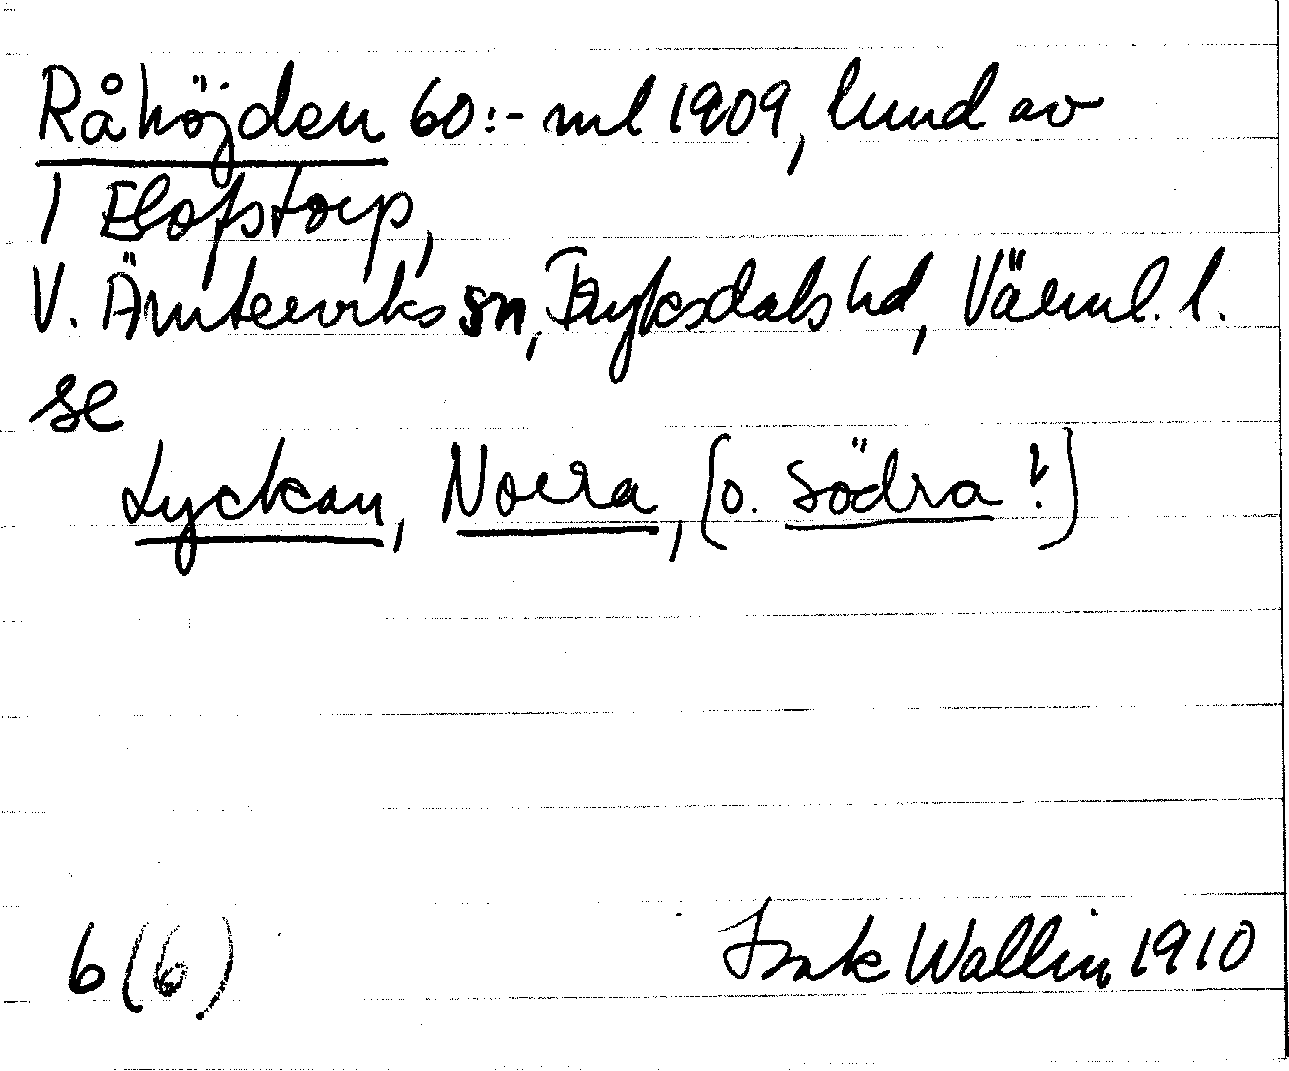 Råhöjden 60:- ml 1909, lund av
1 Elofstorp,
V. Ämterviks sn, Fryksdals hd, Värml. l.
se
Lyckan, Norra, (o. Södra!)
6 (6) Wallin 1910